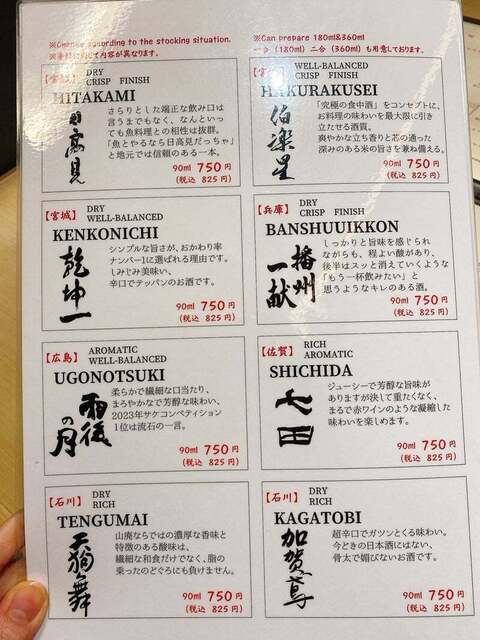 ※Change according to the stocking situation.
※季節に応じて内容が異なります。
※Can prepare 180ml&360ml
一合(180ml)二合(360ml)も用意しております。
【宮城】 DRY
CRISP FINISH
HITAKAMI
日高見
さらりとした端正な飲み口は
言うまでもなく、なんといっ
ても魚料理との相性は抜群。
「魚とやるなら日高見だっちゃ」
と地元では信頼のある一本。
90ml 750円
(税込 825円)
WELL-BALANCED
CRISP FINISH
HAKURAKUSEI
伯楽星
「究極の食中酒」をコンセプトに、
お料理の味わいを最大限に引き
立たせる酒質。
爽やかな立ち香りと芯の通った
深みのある米の旨さを兼ね備える。
90ml 750円
(税込 825円)
【宮城】 DRY
WELL-BALANCED
KENKONICHI
乾坤一
シンプルな旨さが、おかわり率
ナンバー1に選ばれる理由です。
しみじみ美味い、
辛口でテッパンのお酒です。
90ml 750円
(税込 825円)
【兵庫】 DRY
CRISP FINISH
BANSHUUIKKON
播州一献
しっかりと旨味を感じられ
ながらも、程よい酸があり、
後半はスッと消えていくような
「もう一杯飲みたい」と
思うようなキレのある酒。
90ml 750円
(税込 825円)
【広島】 AROMATIC
WELL-BALANCED
UGONOTSUKI
雨後の月
柔らかで繊細な口当たり、
まろやかなで芳醇な味わい。
2023年サケコンペティション
1位は流石の一言。
90ml 750円
(税込 825円)
【佐賀】 RICH
AROMATIC
SHICHIDA
七田
ジューシーで芳醇な旨味が
ありますが決して重たくなく、
まるで赤ワインのような凝縮した
味わいを楽しめます。
90ml 750円
(税込 825円)
【石川】 DRY
RICH
TENGUMAI
天狗舞
山廃ならではの濃厚な香味と
特徴のある酸味は、
繊細な和食だけでなく、脂の
乗ったのどぐろにも負けません。
90ml 750円
(税込 825円)
【石川】 DRY
RICH
KAGATOBI
加賀鳶
超辛口でガツンとくる味わい。
今どきの日本酒にはない、
骨太で媚びないお酒です。
90ml 750円
(税込 825円)